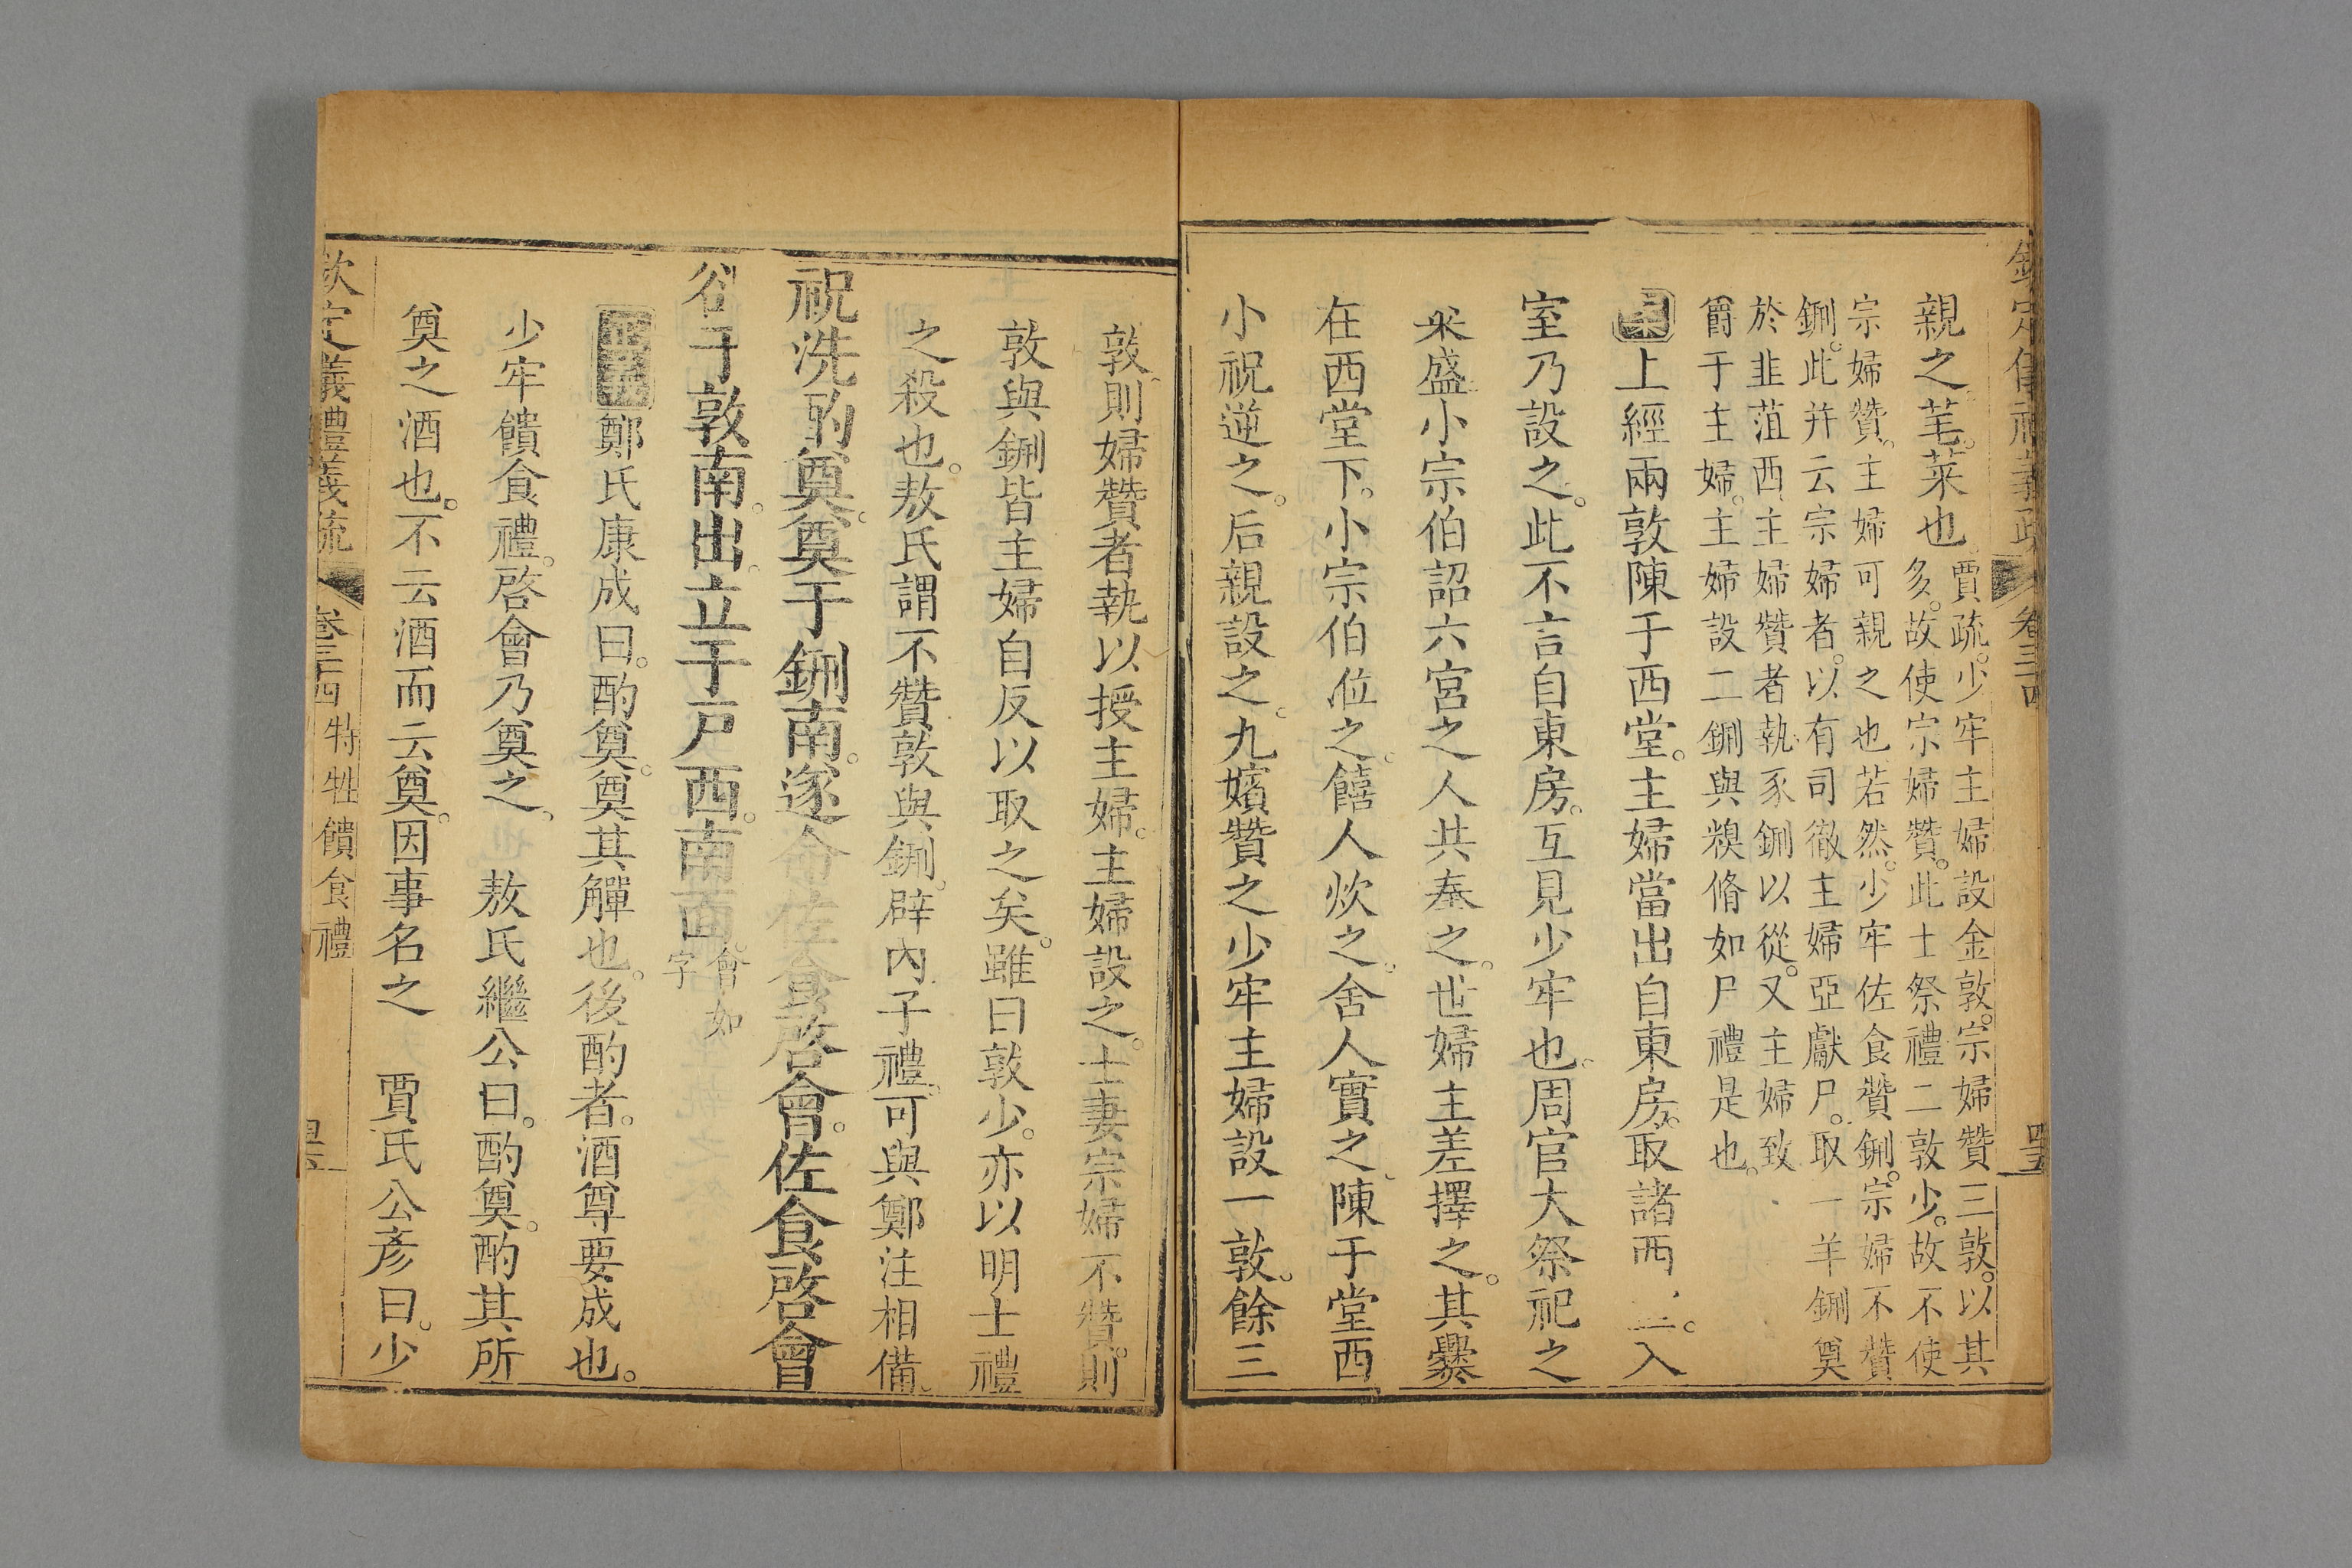 欽定儀禮義疏 卷三四
親之芼菜也賈疏少牢主婦設金敦宗婦贊三敦以其
多故使宗婦贊此士祭禮二敦少故不使
宗婦贊主婦可親之也若然少牢佐食贊鉶宗婦不贊
鉶此并云宗婦者以有司徹主婦亞獻尸取一羊鉶奠
於韭菹西主婦贊者執豕鉶以從又主婦致
爵于主婦主婦設二鉶與糗脩如尸禮是也
案上經兩敦陳于西堂主婦當出自東房取諸西入
室乃設之此不言自東房互見少牢也周官大祭祀之
粢盛小宗伯詔六宮之人共奉之世婦主差擇之其爨
在西堂下小宗伯位之饎人炊之舍人實之陳于堂西
小祝逆之后親設之九嬪贊之少牢主婦設一敦餘三
敦則婦贊者執以授主婦主婦設之士妻宗婦不贊則
敦與鉶皆主婦自反以取之矣雖曰敦少亦以明士禮
之殺也敖氏謂不贊敦與鉶辟內子禮可與鄭注相備
祝洗酌奠奠于鉶南遂命佐食啓會佐食啓會
郤于敦南出立于戸西南面會如
字
鄭氏康成曰酌奠奠其觶也後酌者酒尊要成也
少牢饋食禮啓會乃奠之 敖氏繼公曰酌奠酌其所
奠之酒也不云酒而云奠因事名之 賈氏公彥曰少
欽定儀禮義疏 卷三四 特牲饋食禮